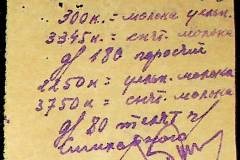 300 к. = молока цельн.
3345 к. = снят. молока
дл 180 поросят
2250 к = цельн. молока
3750 к = снят. молока
дл 80 телят